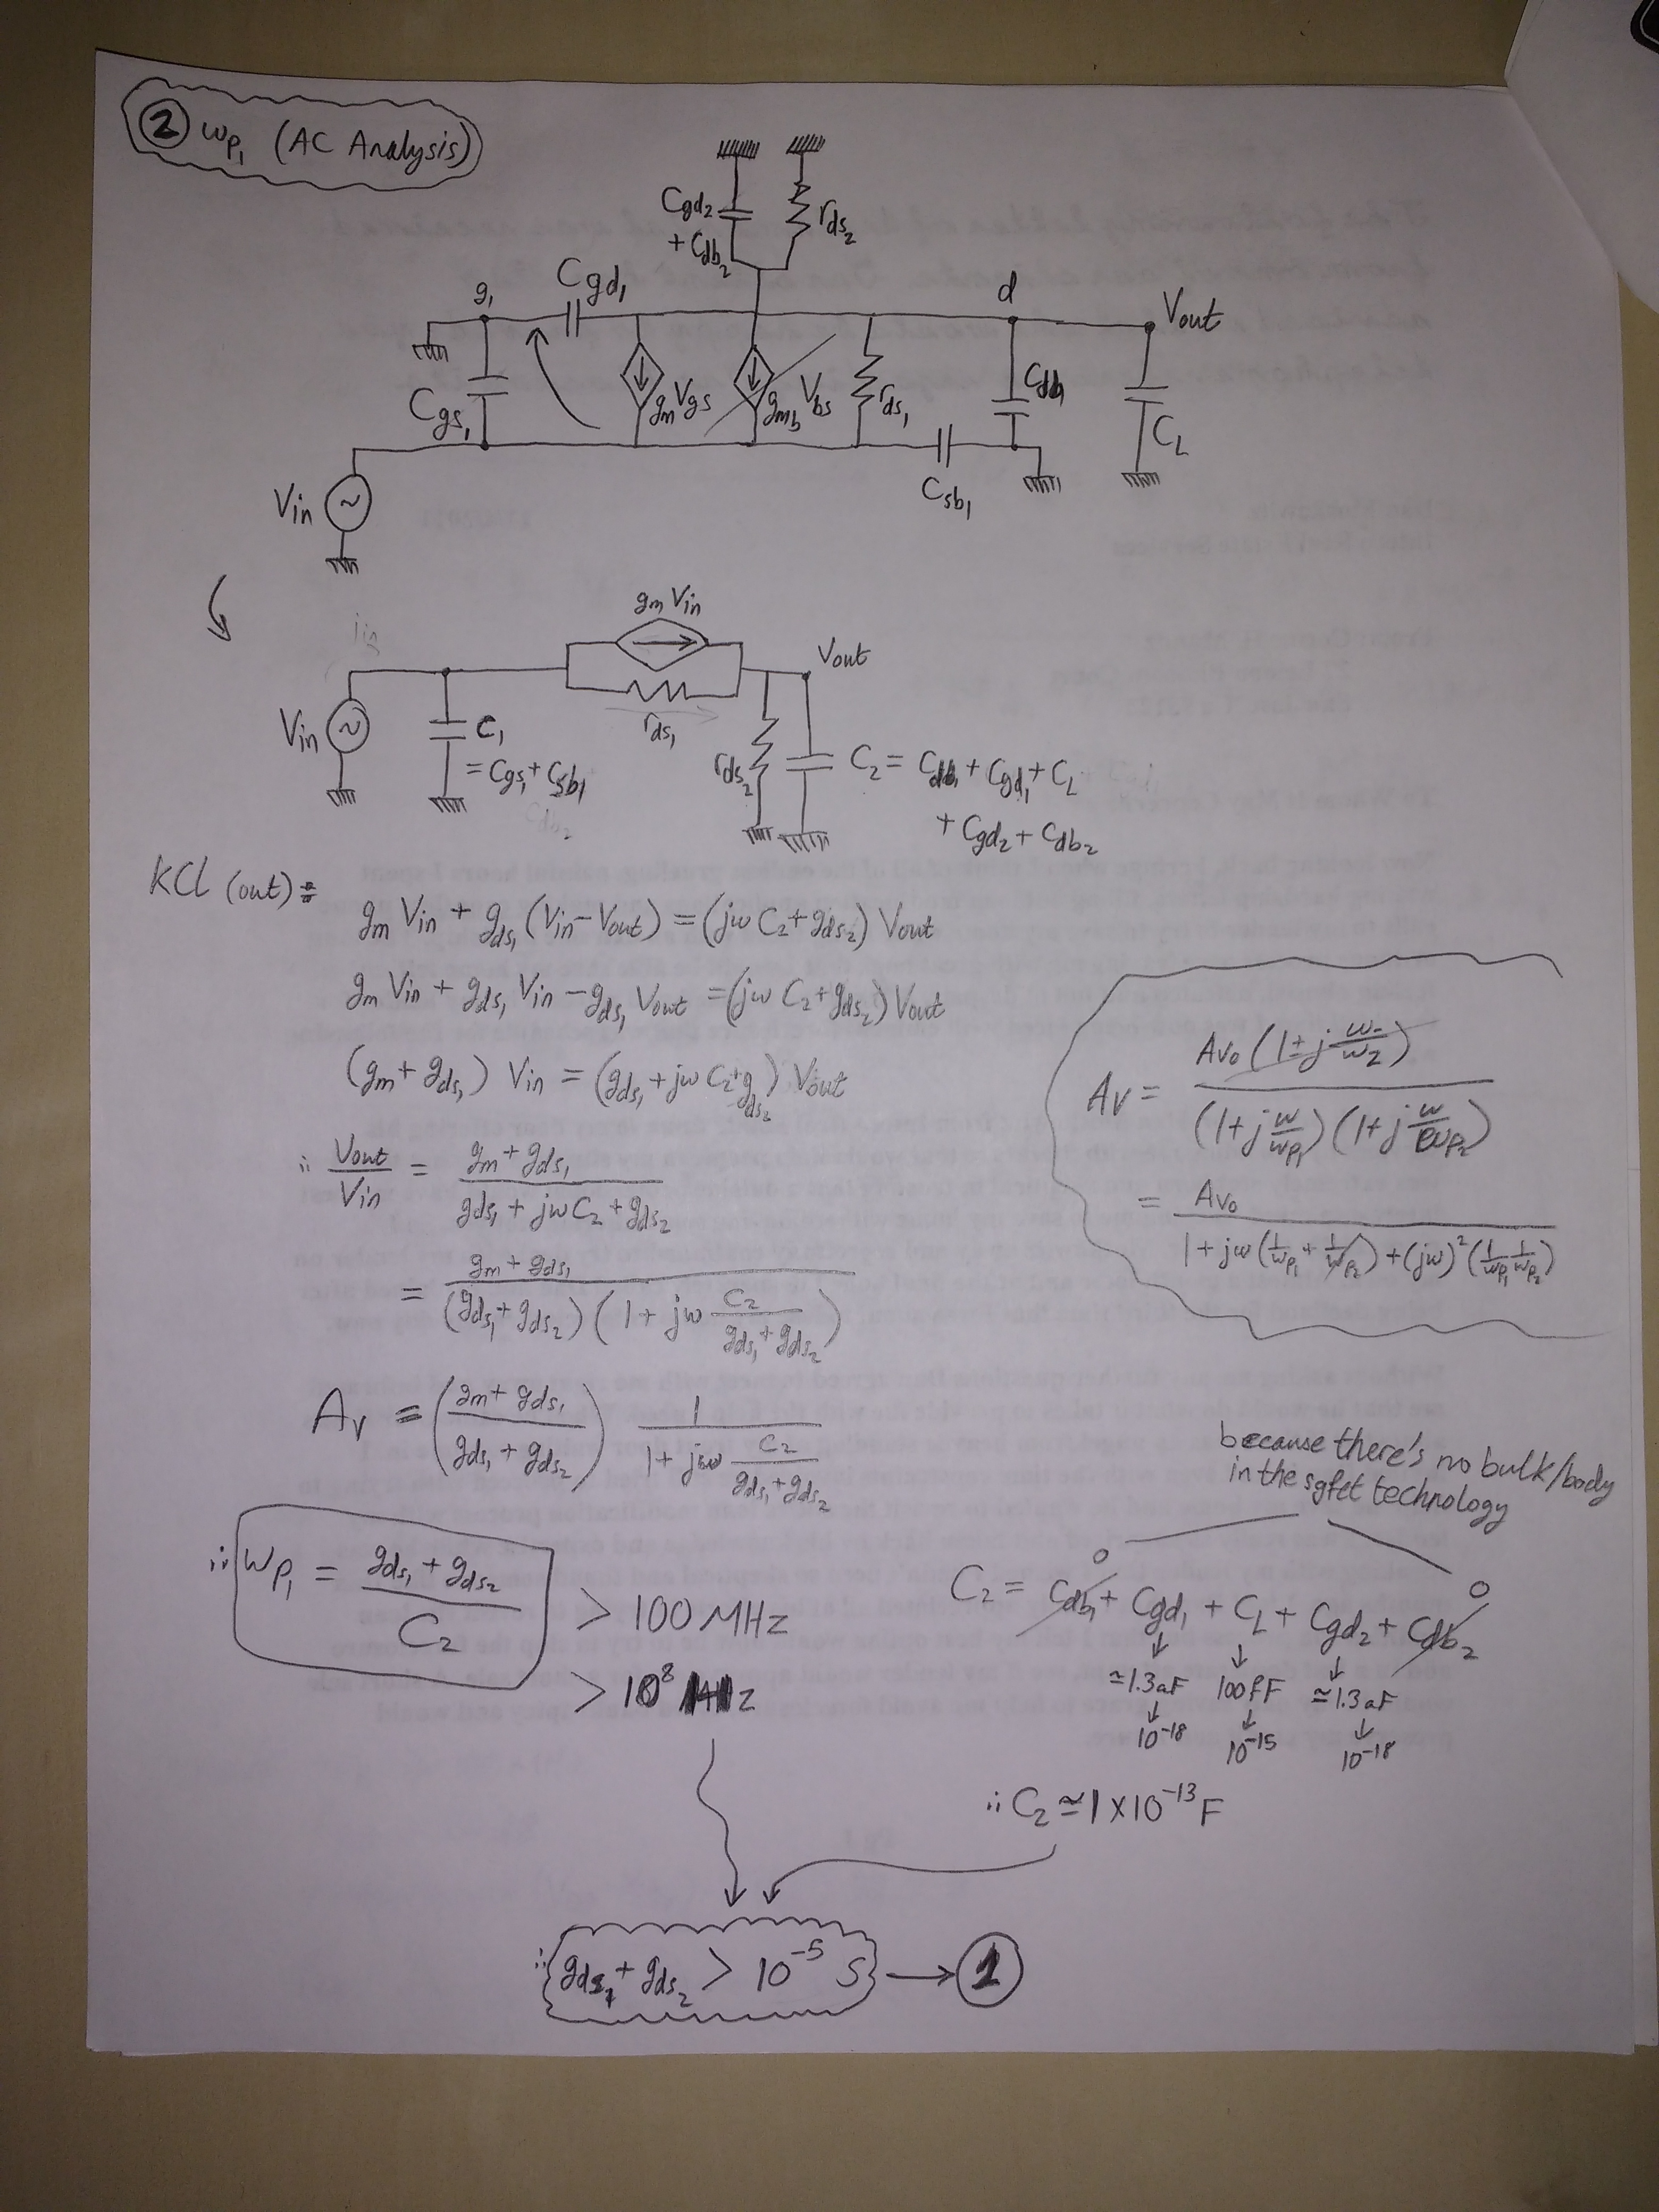 ② ωp₁ (AC Analysis)
Cgd₂
+ Cdb₂
rds₂
g₁
Cgd₁
d
Vout
Cgs₁
gmVgs
gmbVbs
rds₁
Cdb₁
CL
Csb₁
Vin
gm Vin
Vout
Vin
C₁
= Cgs₁ + Csb₁
rds₁
rds₂
C₂ = Cdb₁ + Cgd₁ + CL
+ Cgd₂ + Cdb₂
KCL (out) =
gm Vin + gds₁ (Vin − Vout) = (jω C₂ + gds₂) Vout
gm Vin + gds₁ Vin − gds₁ Vout = (jω C₂ + gds₂) Vout
(gm + gds₁) Vin = (gds₁ + jω C₂ + gds₂) Vout
∴ Vout / Vin = (gm + gds₁) / (gds₁ + jω C₂ + gds₂)
= (gm + gds₁) / ((gds₁ + gds₂) (1 + jω C₂ / (gds₁ + gds₂)))
Av = ((gm + gds₁) / (gds₁ + gds₂)) 1 / (1 + jω C₂ / (gds₁ + gds₂))
∴ ωp₁ = (gds₁ + gds₂) / C₂ > 100 MHz
> 10⁸ Hz
Av = Avo (1 ± j ω / ωz) / ((1 + j ω / ωp₁) (1 + j ω / ωp₂))
= Avo / (1 + jω (1/ωp₁ + 1/ωp₂) + (jω)² (1/ωp₁ 1/ωp₂))
because there's no bulk/body
in the sgfet technology
0 0
C₂ = Cdb₁ + Cgd₁ + CL + Cgd₂ + Cdb₂
≃1.3aF 100fF ≃1.3aF
10⁻¹⁸ 10⁻¹⁵ 10⁻¹⁸
∴ C₂ ≃ 1 × 10⁻¹³ F
∴ gds₁ + gds₂ > 10⁻⁵ S → ①